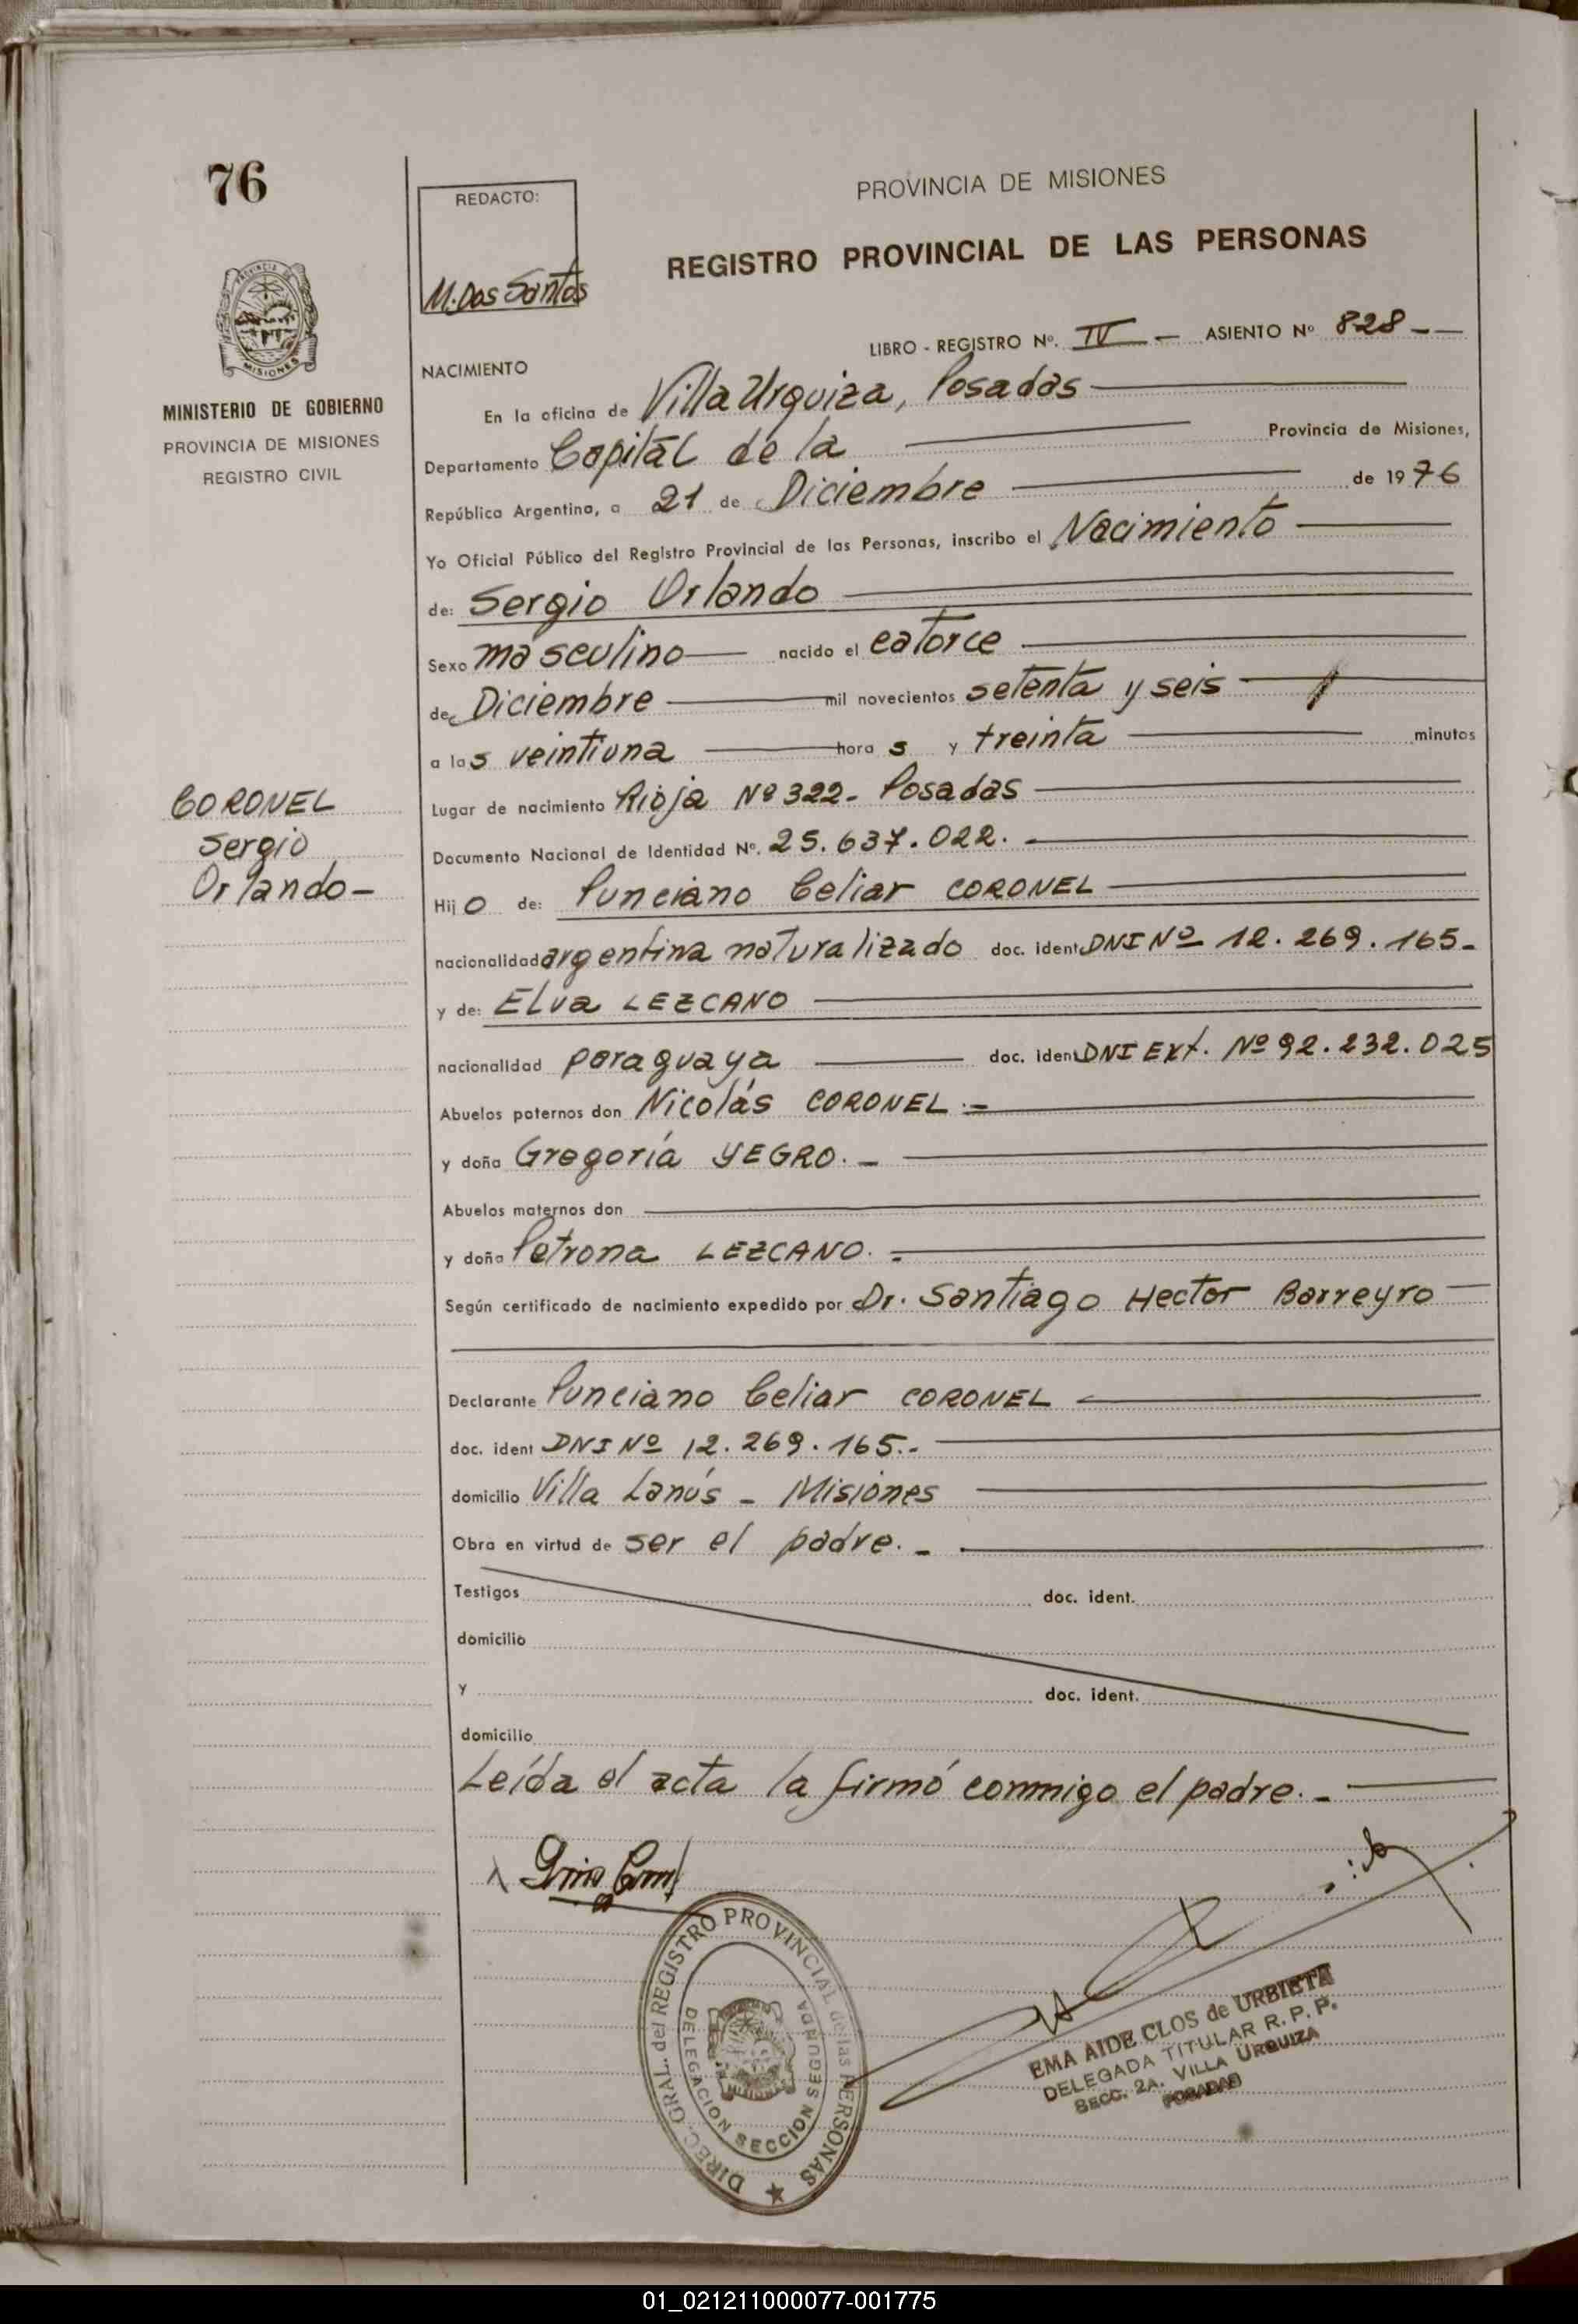 76
REDACTO:
M. Dos Santos
PROVINCIA DE MISIONES
REGISTRO PROVINCIAL DE LAS PERSONAS
PROVINCIA DE MISIONES
MINISTERIO DE GOBIERNO
PROVINCIA DE MISIONES
REGISTRO CIVIL
LIBRO - REGISTRO Nº. IV — ASIENTO Nº 828 - —
NACIMIENTO
En la oficina de Villa Urquiza, Posadas
Departamento Capital de la Provincia de Misiones,
República Argentina, a 21 de Diciembre de 1976
Yo Oficial Público del Registro Provincial de las Personas, inscribo el Nacimiento
de: Sergio Orlando
Sexo masculino nacido el catorce
de Diciembre mil novecientos setenta y seis
a las veintiuna horas y treinta minutos
CORONEL
Sergio
Orlando -
Lugar de nacimiento Rioja Nº 322 - Posadas
Documento Nacional de Identidad Nº. 25.637.022.
Hijo de: Punciano Celiar CORONEL
nacionalidad argentina naturalizado doc. ident. DNI Nº 12.269.165-
y de: Elva LEZCANO
nacionalidad paraguaya doc. ident DNI Ext. Nº 92.232.025
Abuelos paternos don Nicolás CORONEL.-
y doña Gregoria YEGRO. -
Abuelos maternos don
y doña Petrona LEZCANO. -
Según certificado de nacimiento expedido por Dr. Santiago Hector Barreyro
Declarante Punciano Celiar CORONEL
doc. ident DNI Nº 12.269.165.-
domicilio Villa Lanús - Misiones
Obra en virtud de ser el padre. -
Testigos doc. ident.
domicilio
y doc. ident.
domicilio
Leída el acta la firmó conmigo el padre. -
DIREC. GRAL. del REGISTRO PROVINCIAL de las PERSONAS
DELEGACION SECCION SEGUNDA
EMA AIDE CLOS de URBIETA
DELEGADA TITULAR R. P. P.
SECC. 2A. VILLA URQUIZA
POSADAS
01_021211000077-001775